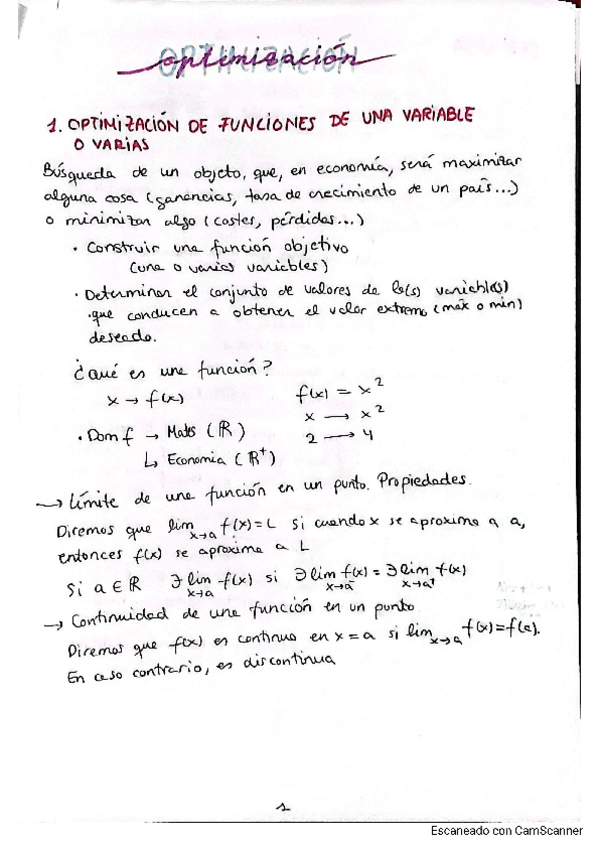 optimización
OPTIMIZACIÓN
1. OPTIMIZACIÓN DE FUNCIONES DE UNA VARIABLE
O VARIAS
Búsqueda de un objeto, que, en economía, será maximizar
alguna cosa (ganancias, tasa de crecimiento de un país...)
o minimizar algo (costes, pérdidas...)
· Construir una función objetivo
(una o varias variables)
· Determinar el conjunto de valores de la(s) variable(s)
que conducen a obtener el valor extremo (máx o mín)
deseado.
¿Qué es una función?
x → f(x)
f(x) = x²
x → x²
· Dom f → Mates (ℝ)
2 → 4
↳ Economía (ℝ⁺)
→ Límite de una función en un punto. Propiedades.
Diremos que lim x→a f(x) = L si cuando x se aproxima a a,
entonces f(x) se aproxima a L
Si a ∈ ℝ ∃ lim x→a f(x) si ∃ lim x→a⁻ f(x) = ∃ lim x→a⁺ f(x)
→ Continuidad de una función en un punto
Diremos que f(x) es continua en x=a si lim x→a f(x)=f(a).
En caso contrario, es discontinua
1
Escaneado con CamScanner